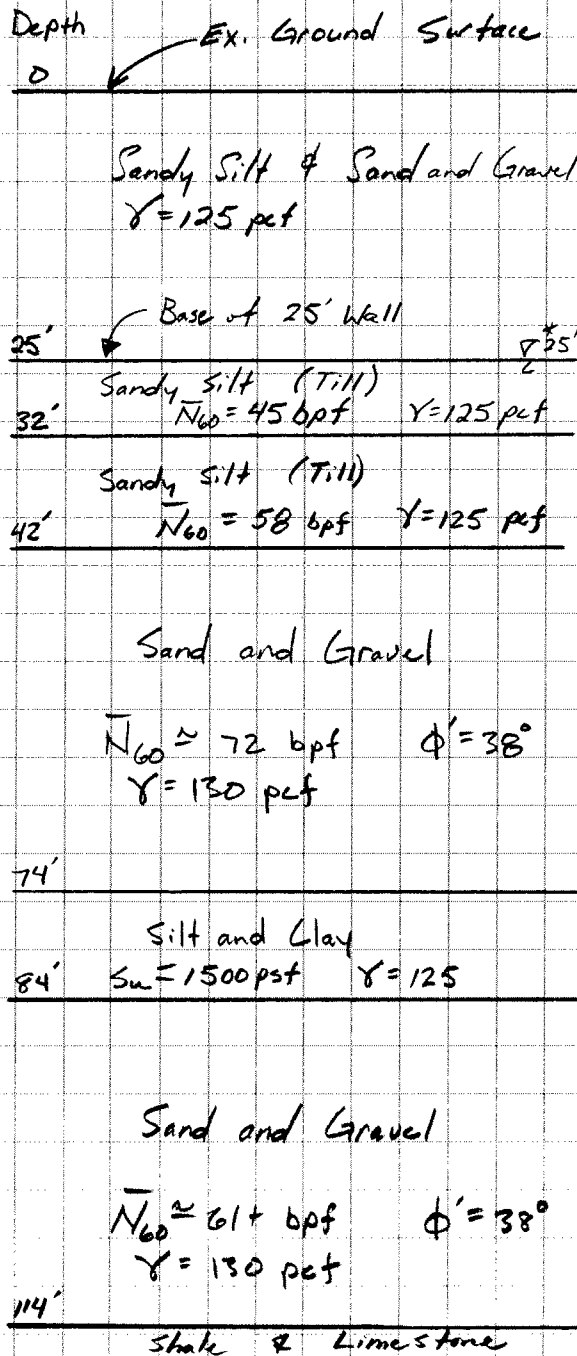 Depth
Ex. Ground Surface
0
Sandy Silt & Sand and Gravel
γ = 125 pcf
Base of 25' Wall
25'
∇ *25'
Sandy Silt (Till)
N̅60 = 45 bpf γ = 125 pcf
32'
Sandy Silt (Till)
N̅60 = 58 bpf γ = 125 pcf
42'
Sand and Gravel
N̅60 ≈ 72 bpf ϕ' = 38°
γ = 130 pcf
74'
Silt and Clay
Su = 1500 psf γ = 125
84'
Sand and Gravel
N̅60 ≈ 61+ bpf ϕ' = 38°
γ = 130 pcf
114'
Shale & Limestone